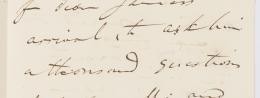 of dear James
arrival, to ask him
a thousand questions
and